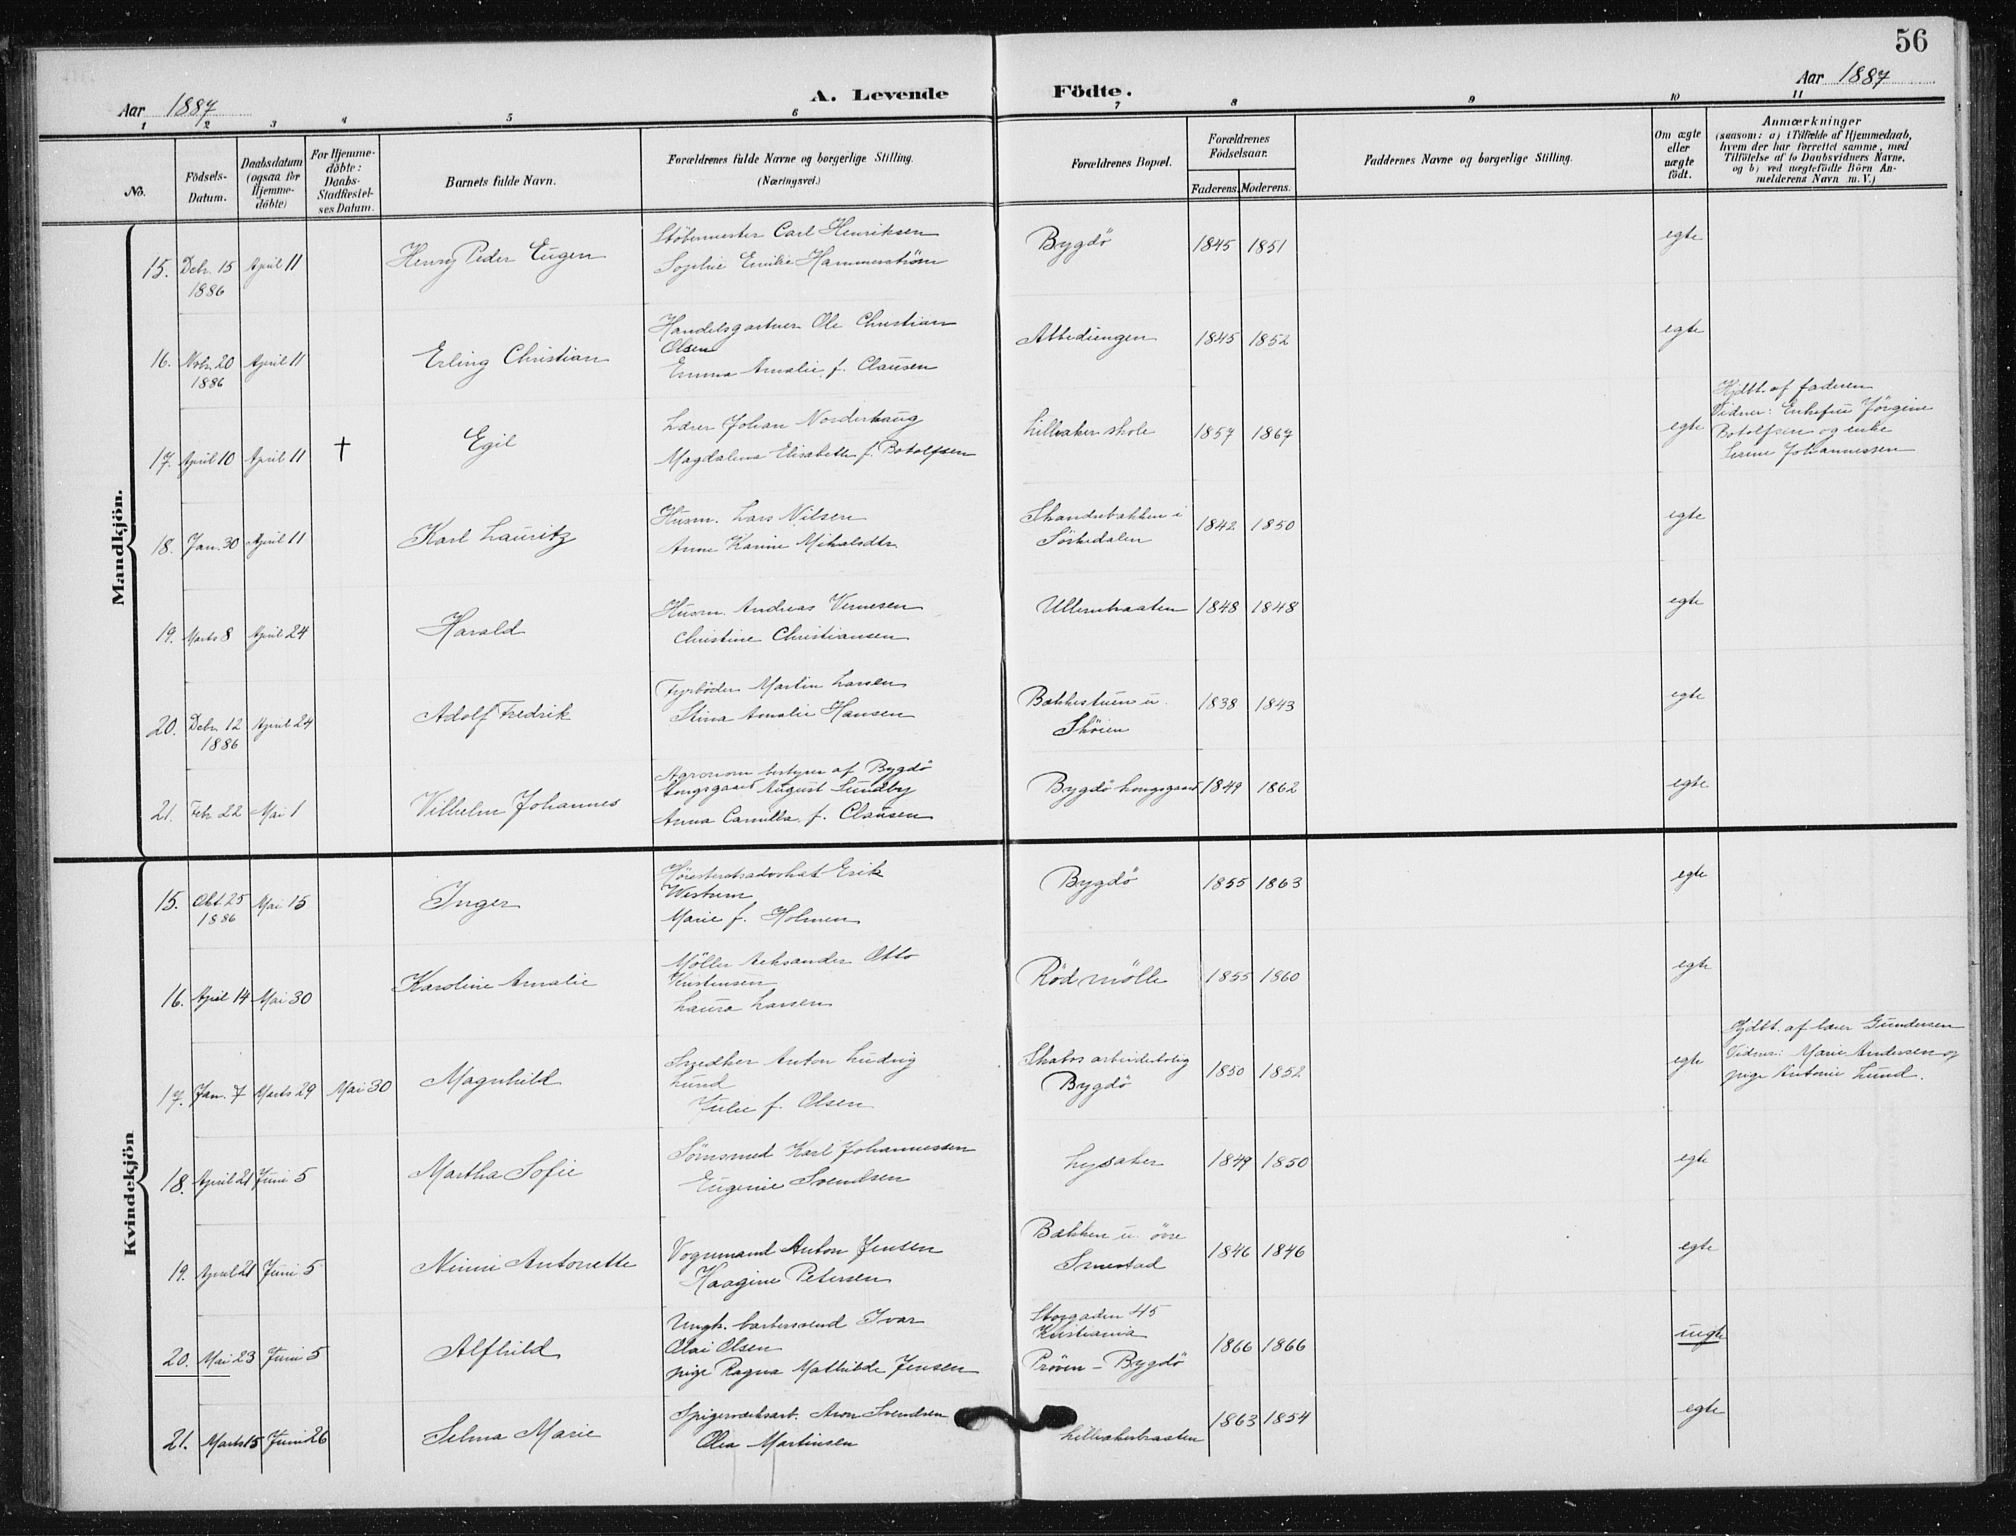 56
Aar 1887
A. Levende Födte.
Aar 1887
1 2 3 4 5 6 7 8 9 10 11
No.
Födsels-Datum.
Daabsdatum (ogsaa for Hjemme-döbte)
For Hjemme-döbte: Daabs-Stadfæstel-ses Datum.
Barnets fulde Navn.
Forældrenes fulde Navne og borgerlige Stilling.
(Næringsvei.)
Forældrenes Bopæl.
Forældrenes Födselsaar.
Faderens. Moderens.
Faddernes Navne og borgerlige Stilling.
Om ægte eller uægte födt.
Anmærkninger
(saasom: a) i Tilfælde af Hjemmedaab, hvem der har forrettet samme, med Tilföielse af to Daabsvidners Navne, og b) ved uægtefödte Börn An-melderens Navn m. V.)
Mandkjön.
15. Debr. 15 1886 April 11 Henry Peder Eugen
Støbemester Carl Henriksen
Sophie Emilie Hammerstrøm
Bygdö 1845 1851 egte
16. Nobr. 20 1886 April 11 Erling Christian
Handelsgartner Ole Christian
Olsen
Emma Amalie f. Clausen
Abbediengen 1845 1852 egte
17. April 10 April 11 † Egil
Lærer Johan Norderhaug
Magdalena Elisabeth f. Botolfsen
Lilleaker skole 1857 1867 egte
Hjdbt. af faderen
Vidner: Enkefru Jörgine
Botolfsen og enke
Serine Johannessen
18. Jan. 30 April 11 Karl Lauritz
Husm. Lars Nilsen
Anne Karine Mikalsdtr
Strandebakken i
Sörkedalen
1842 1850 egte
19. Marts 8 April 24 Harald
Husm. Andreas Vernesen
Christine Christiansen
Ullernbraaten 1848 1848 egte
20. Debr. 12 1886 April 24 Adolf Fredrik
Fyrböder Martin Larsen
Stina Amalie Hansen
Bakkestuen u.
Skøien
1838 1843 egte
21. Feb. 22 Mai 1 Vilhelm Johannes
Agronom bestyrer af Bygdö
Kongsgaard August Sundby
Anna Camilla f. Clausen
Bygdö kongsgaard 1849 1862 egte
Kvindekjön
15. Okt. 25 1886 Mai 15 Inger
Höiesteretsadvokat Erik
Westrem
Marie f. Holmen
Bygdö 1855 1863 egte
16. April 14 Mai 30 Karoline Amalie
Möller Aleksander Otto
Kristensen
Laura Larsen
Röd mölle 1855 1860 egte
17. Jan. 7 Marts 29 Mai 30 Magnhild
Snedker Anton Ludvig
Lund
Julie f. Olsen
Skabos arbeiderbolig
Bygdö
1850 1852 egte
Hjdbt. af lærer Gundersen
Vidner: Marie Andersen og
pige Antonie Lund.
18. April 21 Juni 5 Martha Sofie
Sömsmed Karl Johannessen
Eugenie Svendsen
Lysaker 1849 1850 egte
19. April 21 Juni 5 Ninni Antonette
Vognmand Anton Jensen
Haagine Petersen
Bakken u. övre
Smestad
1846 1846 egte
20. Mai 23 Juni 5 Alfhild
Ungk. barbersvend Ivar
Olai Olsen
pige Ragna Mathilde Jensen
Storgaden 45
Kristiania
Pröven - Bygdö
1866 1866 uegte
21. Marts 15 Juni 26 Selma Marie
Spigerværksarb. Aron Svendsen
Olea Martinsen
Lilleakerbraaten 1863 1854 egte